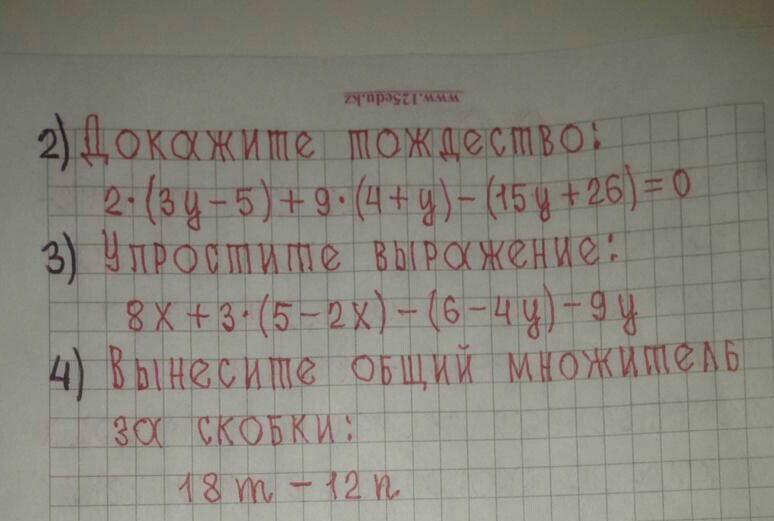 www.125edu.kz
2) Докажите тождество:
2·(3y-5)+9·(4+y)-(15y+26)=0
3) Упростите выражение:
8x+3·(5-2x)-(6-4y)-9y
4) Вынесите общий множитель
за скобки:
18m-12n